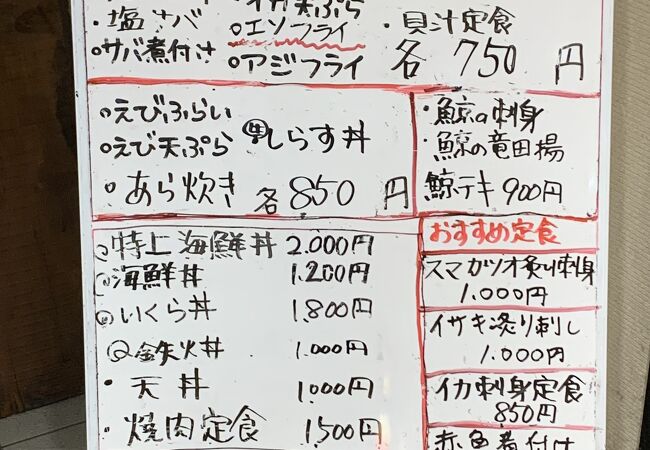 ・塩サバ
イカ天ぷら
エソフライ
・貝汁定食
サバ煮付け
アジフライ
各 750 円
えびふらい
えび天ぷら
生しらす丼
・あら炊き 各 850 円
・鯨の刺身
・鯨の竜田揚
鯨テキ 900円
特上海鮮丼 2.000円
海鮮丼 1.200円
いくら丼 1.800円
鉄火丼 1.000円
・天丼 1.000円
・焼肉定食 1500円
おすすめ定食
スマガツオ炙り刺身
1.000円
イサキ炙り刺し
1.000円
イカ刺身定食
850円
赤魚煮付け